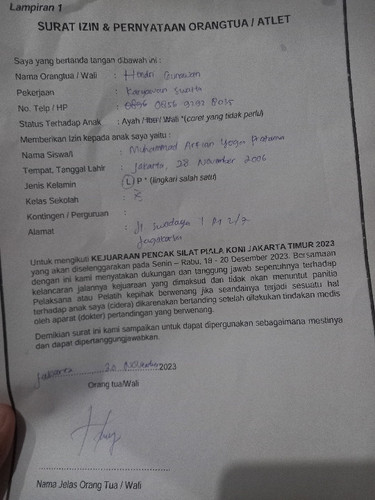 Lampiran 1
SURAT IZIN & PERNYATAAN ORANGTUA / ATLET
Saya yang bertanda tangan dibawah ini :
Nama Orangtua / Wali : Hendri Gunawan
Pekerjaan : Karyawan Swasta
No. Telp / HP : 0896 0856 9292 8035
Status Terhadap Anak : Ayah / Ibu / Wali *(coret yang tidak perlu)
Memberikan Izin kepada anak saya yaitu :
Nama Siswa/i : Muhammad Yoga Pratama
Tempat, Tanggal Lahir : Jakarta, 28 November 2006
Jenis Kelamin : L P * (lingkari salah satu)
Kelas Sekolah :
Kontingen / Perguruan :
Alamat : Jl 1
Untuk mengikuti KEJUARAAN PENCAK SILAT PIALA KONI JAKARTA TIMUR 2023
yang akan diselenggarakan pada Senin – Rabu, 18 - 20 Desember 2023. Bersamaan
dengan ini kami menyatakan dukungan dan tanggung jawab sepenuhnya terhadap
kelancaran jalannya kejuaraan yang dimaksud dan tidak akan menuntut panitia
Pelaksana atau Pelatih kepihak berwenang jika seandainya terjadi sesuatu hal
terhadap anak saya (cidera) dikarenakan bertanding setelah dilakukan tindakan medis
oleh aparat (dokter) pertandingan yang berwenang.
Demikian surat ini kami sampaikan untuk dapat dipergunakan sebagaimana mestinya
dan dapat dipertanggungjawabkan.
Jakarta 20 November 2023
Orang tua/Wali
Nama Jelas Orang Tua / Wali